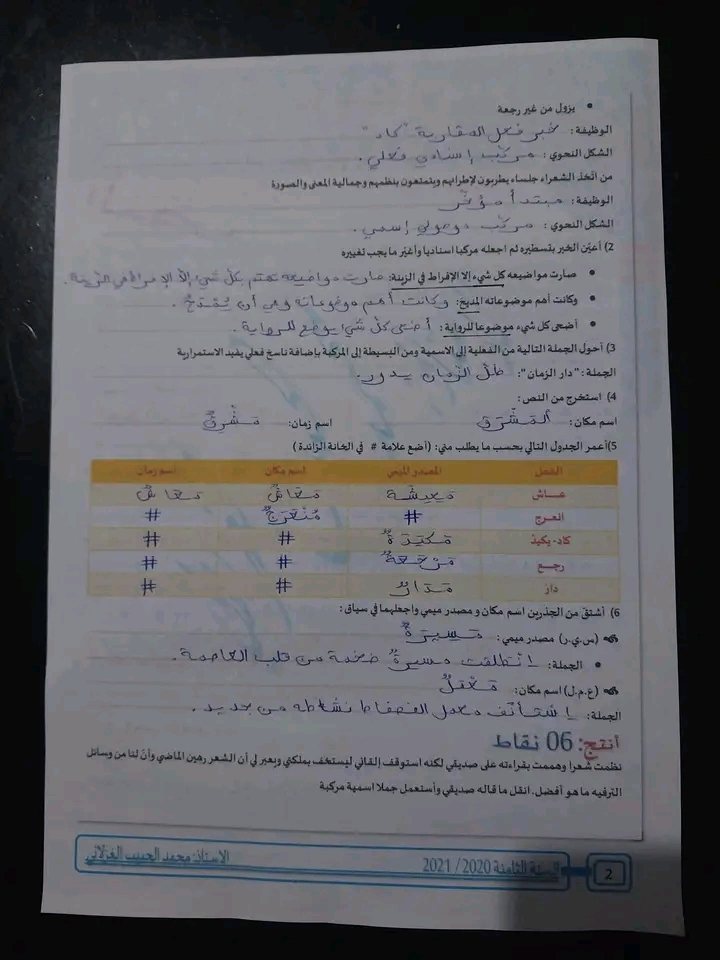 • يزول من غير رجعة
الوظيفة: خبر فعل المقاربة "كاد"
الشكل النحوي: مركّب إسنادي فعلي.
من اتخذ الشعراء جلساء يطربون لإطرابهم ويتمتعون بنظمهم وجمالية المعنى والصورة
الوظيفة: مبتدأ مؤخّر
الشكل النحوي: مركّب موصولي إسمي.
2) أعيّن الخبر بتسطيره ثم اجعله مركبا اسناديا وأغيّر ما يجب تغييره
• صارت مواضيعه كل شيء إلا الإفراط في الزينة: صارت مواضيعه تهتم بكلّ شيء إلّا الإفراط في الزينة.
• وكانت أهم موضوعاته المديح: وكانت أهم موضوعاته هي أن يُمْدَحَ.
• أضحى كل شيء موضوعا للرواية: أضحى كلّ شيء يوضع للرواية.
3) أحول الجملة التالية من الفعلية إلى الاسمية ومن البسيطة إلى المركبة بإضافة ناسخ فعلي يفيد الاستمرارية
الجملة: "دار الزمان": ظلّ الزمان يدور.
4) استخرج من النص:
اسم مكان: المَشْرِق اسم زمان: مَشْرِقٌ
5) أعمر الجدول التالي بحسب ما يطلب مني: (أضع علامة # في الخانة الزائدة)
الفعل المصدر الميمي اسم مكان اسم زمان
عاش مَعِيشَة مَعَاشٌ مَعَاشٌ
انعرج # مُنْعَرَجٌ #
كاد- يكيد مَكِيدَةٌ # #
رجع مَرْجِعَةٌ # #
دار مَدَارٌ # #
6) أشتق من الجذرين اسم مكان و مصدر ميمي واجعلهما في سياق:
(س.ي.ر) مصدر ميمي: مَسِيرَةٌ
• الجملة: انْطلقت مسيرةٌ ضخمة من قلب العاصمة.
(ع.م.ل) اسم مكان: مَعْمَلٌ
الجملة: اِسْتَأْنَفَ معمل الفسفاط نشاطه من جديد.
أنتج: 06 نقاط
نظمت شعرا وهممت بقراءته على صديقي لكنه استوقف إلقائي ليستخف بملكتي ويعبر لي أن الشعر رهين الماضي وأنّ لنا من وسائل
الترفيه ما هو أفضل. انقل ما قاله صديقي وأستعمل جملا اسمية مركبة
2 السنة الثامنة 2020/ 2021 الاستاذ: محمد الحبيب الغزلاني